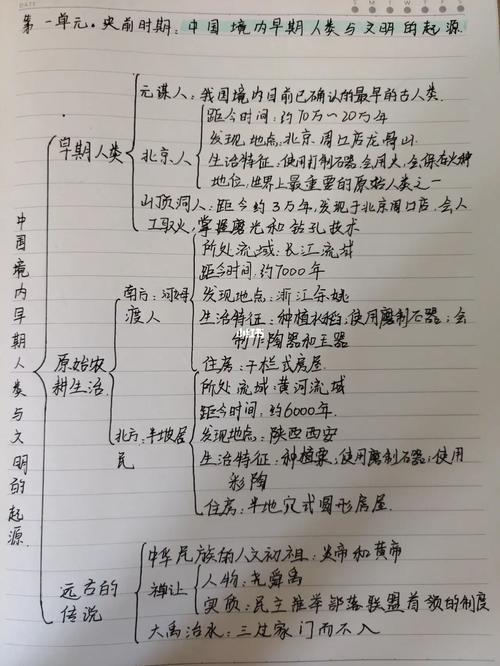 DATE
第一单元.史前时期:中国境内早期人类与文明的起源.
中国境内早期人类与文明的起源.
早期人类
元谋人:我国境内目前已确认的最早的古人类.
北京人
距今时间:约70万~20万年
发现地点:北京周口店龙骨山.
生活特征:使用打制石器会用火,会保存火种
地位,世界上最重要的原始人类之一
山顶洞人:距今约3万年,发现于北京周口店.会人
工取火,掌握磨光和钻孔技术
原始农
耕生活.
南方:河姆
渡人
所处流域:长江流域
距今时间:约7000年
发现地点:浙江余姚
生活特征:种植水稻;使用磨制石器;会
制作陶器和玉器
住房:干栏式房屋
北方:半坡居
民
所处流域:黄河流域
距今时间:约6000年.
发现地点:陕西西安
生活特征:种植粟;使用磨制石器;使用
彩陶
住房:半地穴式圆形房屋.
远古的
传说
中华民族的人文初祖:炎帝和黄帝
禅让
人物:尧舜禹
实质:民主推举部落联盟首领的制度
大禹治水:三过家门而不入
小红书